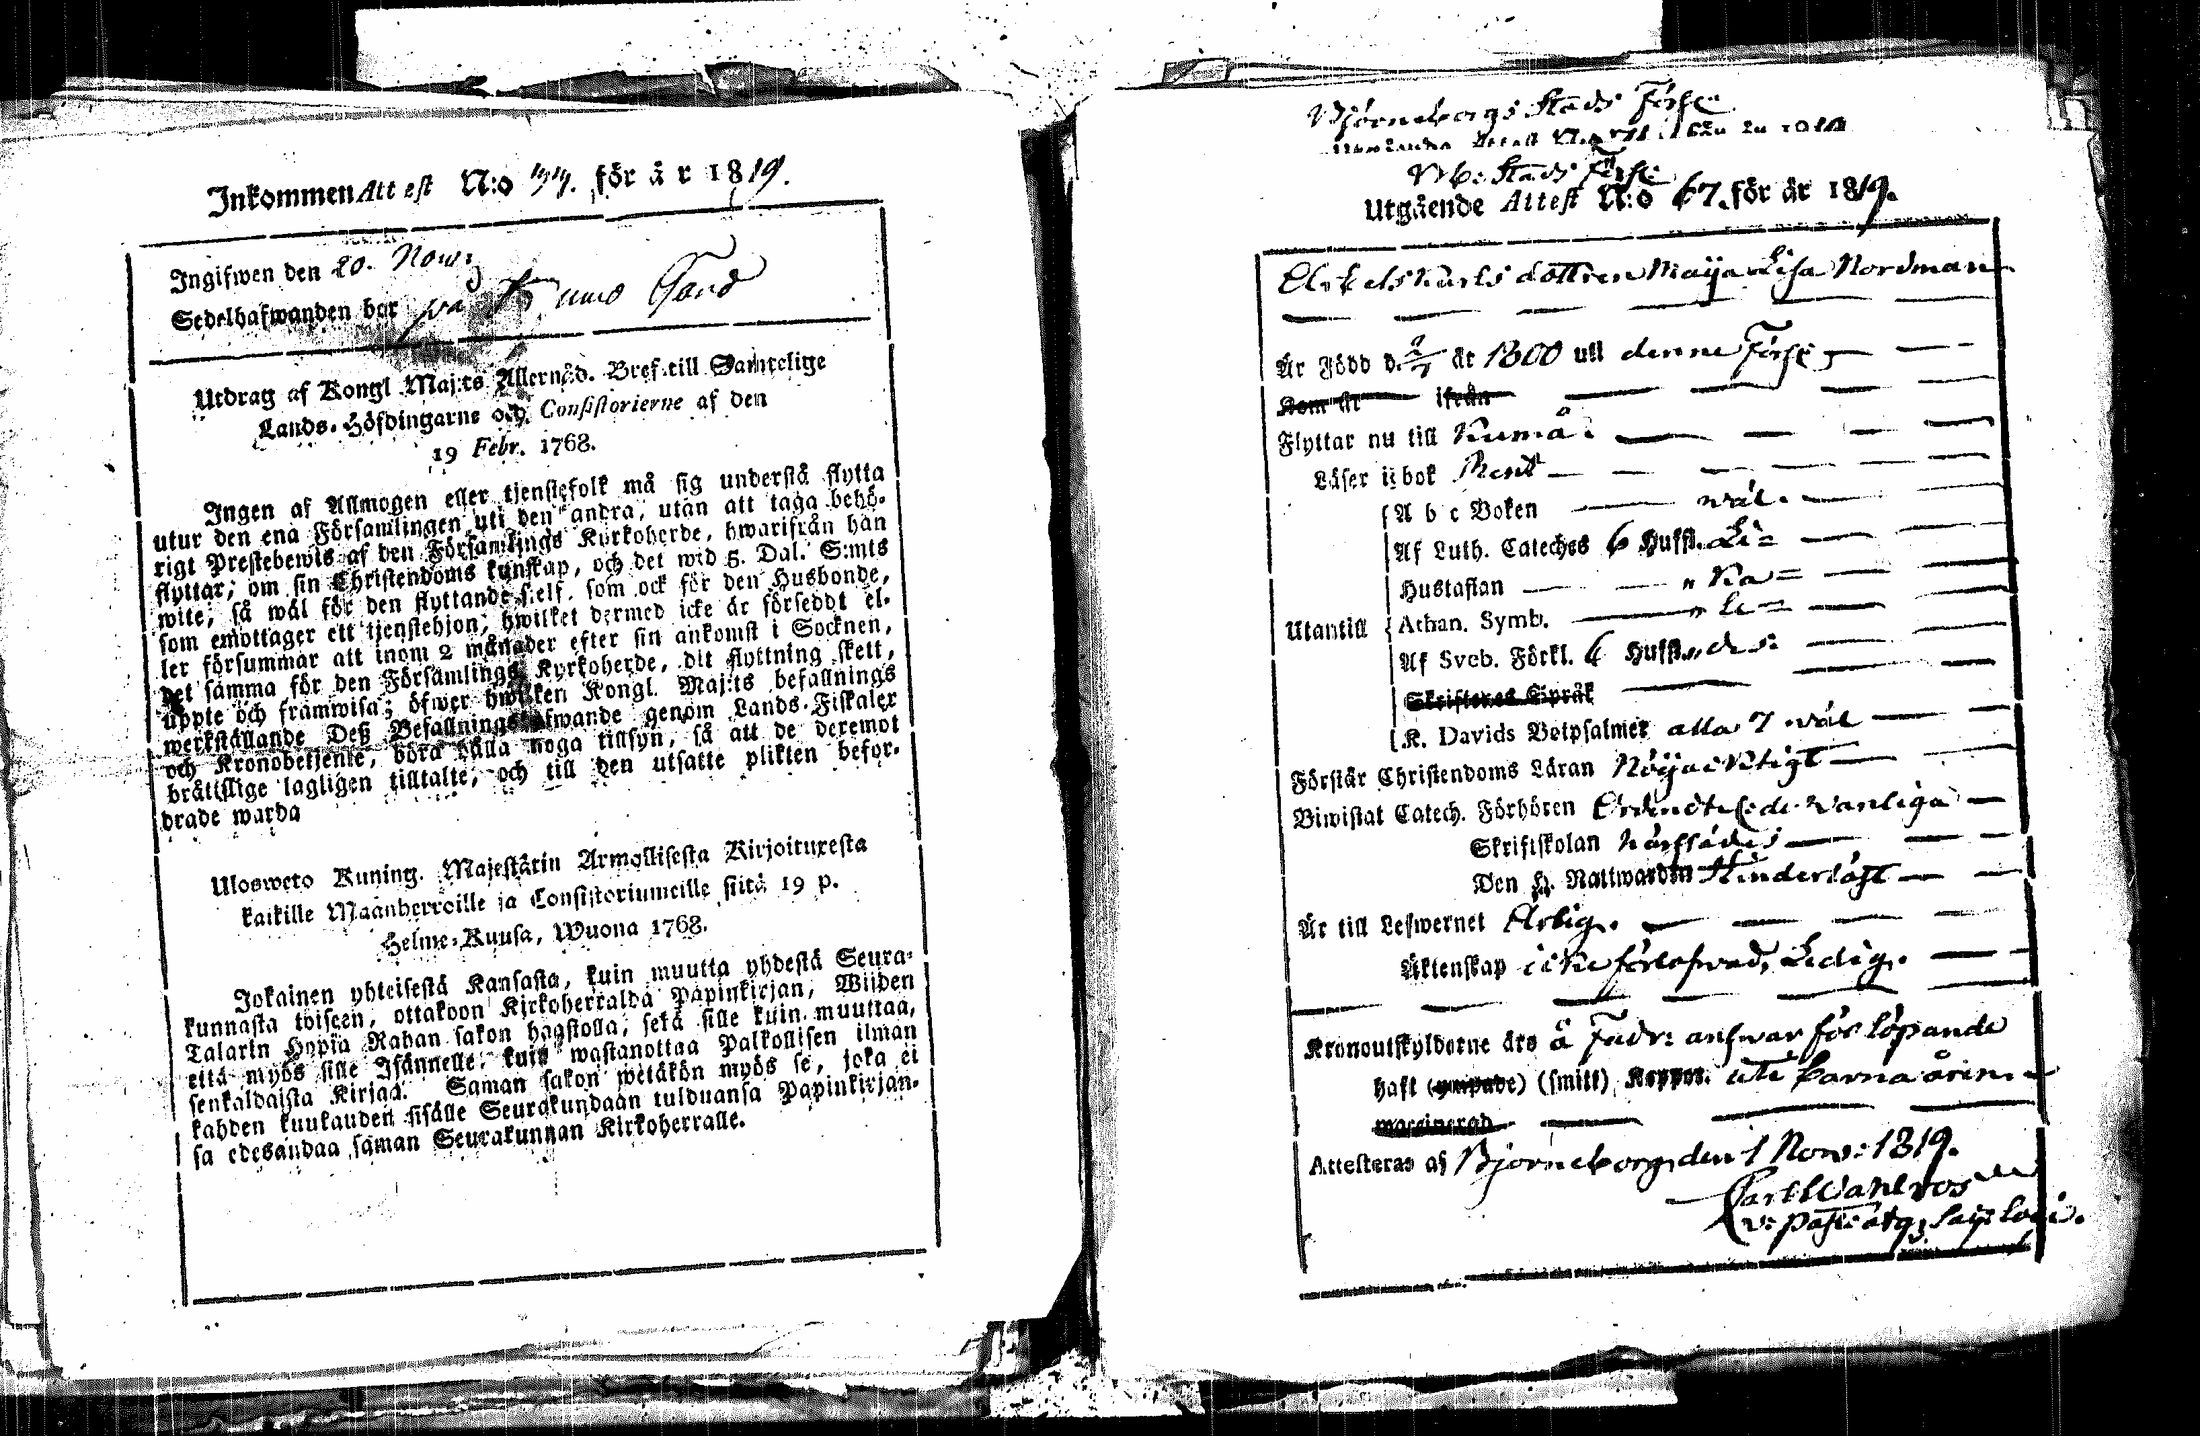 Inkommen Attest N:o 44. för år 1819.
Ingifwen den 20. Now:
Sedelhafwanden bor på Gård
Utdrag af Kongl. Maj:ts Allernåd. Bref till Samtelige
Lands-Höfdingarne och Consistorierne af den
19 Febr. 1768.
Ingen af Allmogen eller tjenstefolk må sig understå flytta
utur den ena Församlingen uti den andra, utan att taga behö-
rigt Prestebewis af den Församlings Kyrkoherde, hwarifrån han
flyttar, om sin Christendoms kunskap, och det wid 5. Dal. S:mts
wite, så wäl för den flyttande sielf, som ock för den Husbonde,
som emottager ett tjenstehjon, hwilket dermed icke är försedt el-
ler försummar att inom 2 månader efter sin ankomst i Socknen,
det samma för den Församlings Kyrkoherde, dit flyttning skett,
uppte och framwisa; öfwer hwilken Kongl. Maj:ts befallnings
werkställande Deß Befallningshafwande genom Lands-Fiskaler
och Kronobetjente, böra hålla noga tillsyn, så att de deremot
bråtislige lagligen tilltalte, och till den utsatte plikten befor-
drade warda
Ulosweto Kuning. Majestätin Armollisesta Kirjoituxesta
kaikille Maanherroille ja Consistoriumeille siitä 19 p.
Helme-Kuusa, Wuona 1768.
Jokainen yhteisestä Kansasta, kuin muutta yhdestä Seura-
kunnasta toiseen, ottakoon Kirkoherralda Papinkirjan, Wijden
Talarin Hopia Rahan sakon haastolla, sekä sille kuin muuttaa,
että myös sille Isännelle, kuin wastanottaa Palkollisen ilman
senkaldaista Kirjaa. Saman sakon wetäkön myös se, joka ei
kahden kuukauden sisälle Seurakundaan tulduansa Papinkirjan-
sa edesandaa saman Seurakunnan Kirkoherralle.
Björneborgs Stads Förs:
Utgående Attest N:o för år
Bb: Stads Förs:
Utgående Attest N:o 67. för år 1819.
Arbetskarls dottren Maija Lisa Nordman
Är Född d. 2/7 år 1800 uti denne Förs:
Kom år ifrån
Flyttar nu till Kumå.
Läser i bok Rent
A b c Boken wäl.
Af Luth. Cateches 6 Hufst. Li=
Hustaflan " Ka=
Utantill
Athan. Symb. " le=
Af Sveb. Förkl. 6 Hufst. " des:
Skriftenes Språk
K. Davids Botpsalmer alla 7 wäl
Förstår Christendoms Läran Nöijacktigt
Biwistat Catech. Förhören Ordentel: de wanliga
Skriftskolan härstädes
Den H. Nattwarden Hinderlöst
Är till Lefwernet Ärbig.
Äktenskap icke förlofwad, Ledig.
Kronoutskylderne äro å Fadr: answar för löpande
haft (ympade) (smitt) Koppor. uti barna åren.
waccinerad
Attesteras af Björneborg den 1 Now: 1819.
Carl Wahlroos